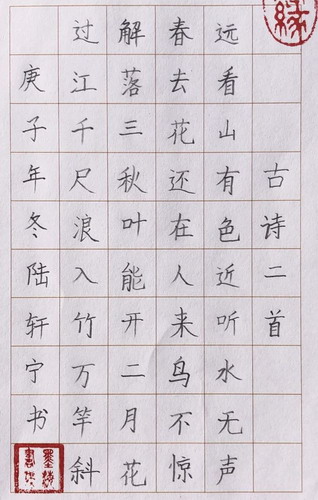 緣
古诗二首
远看山有色近听水无声
春去花还在人来鸟不惊
解落三秋叶能开二月花
过江千尺浪入竹万竿斜
庚子年冬陆轩宁书